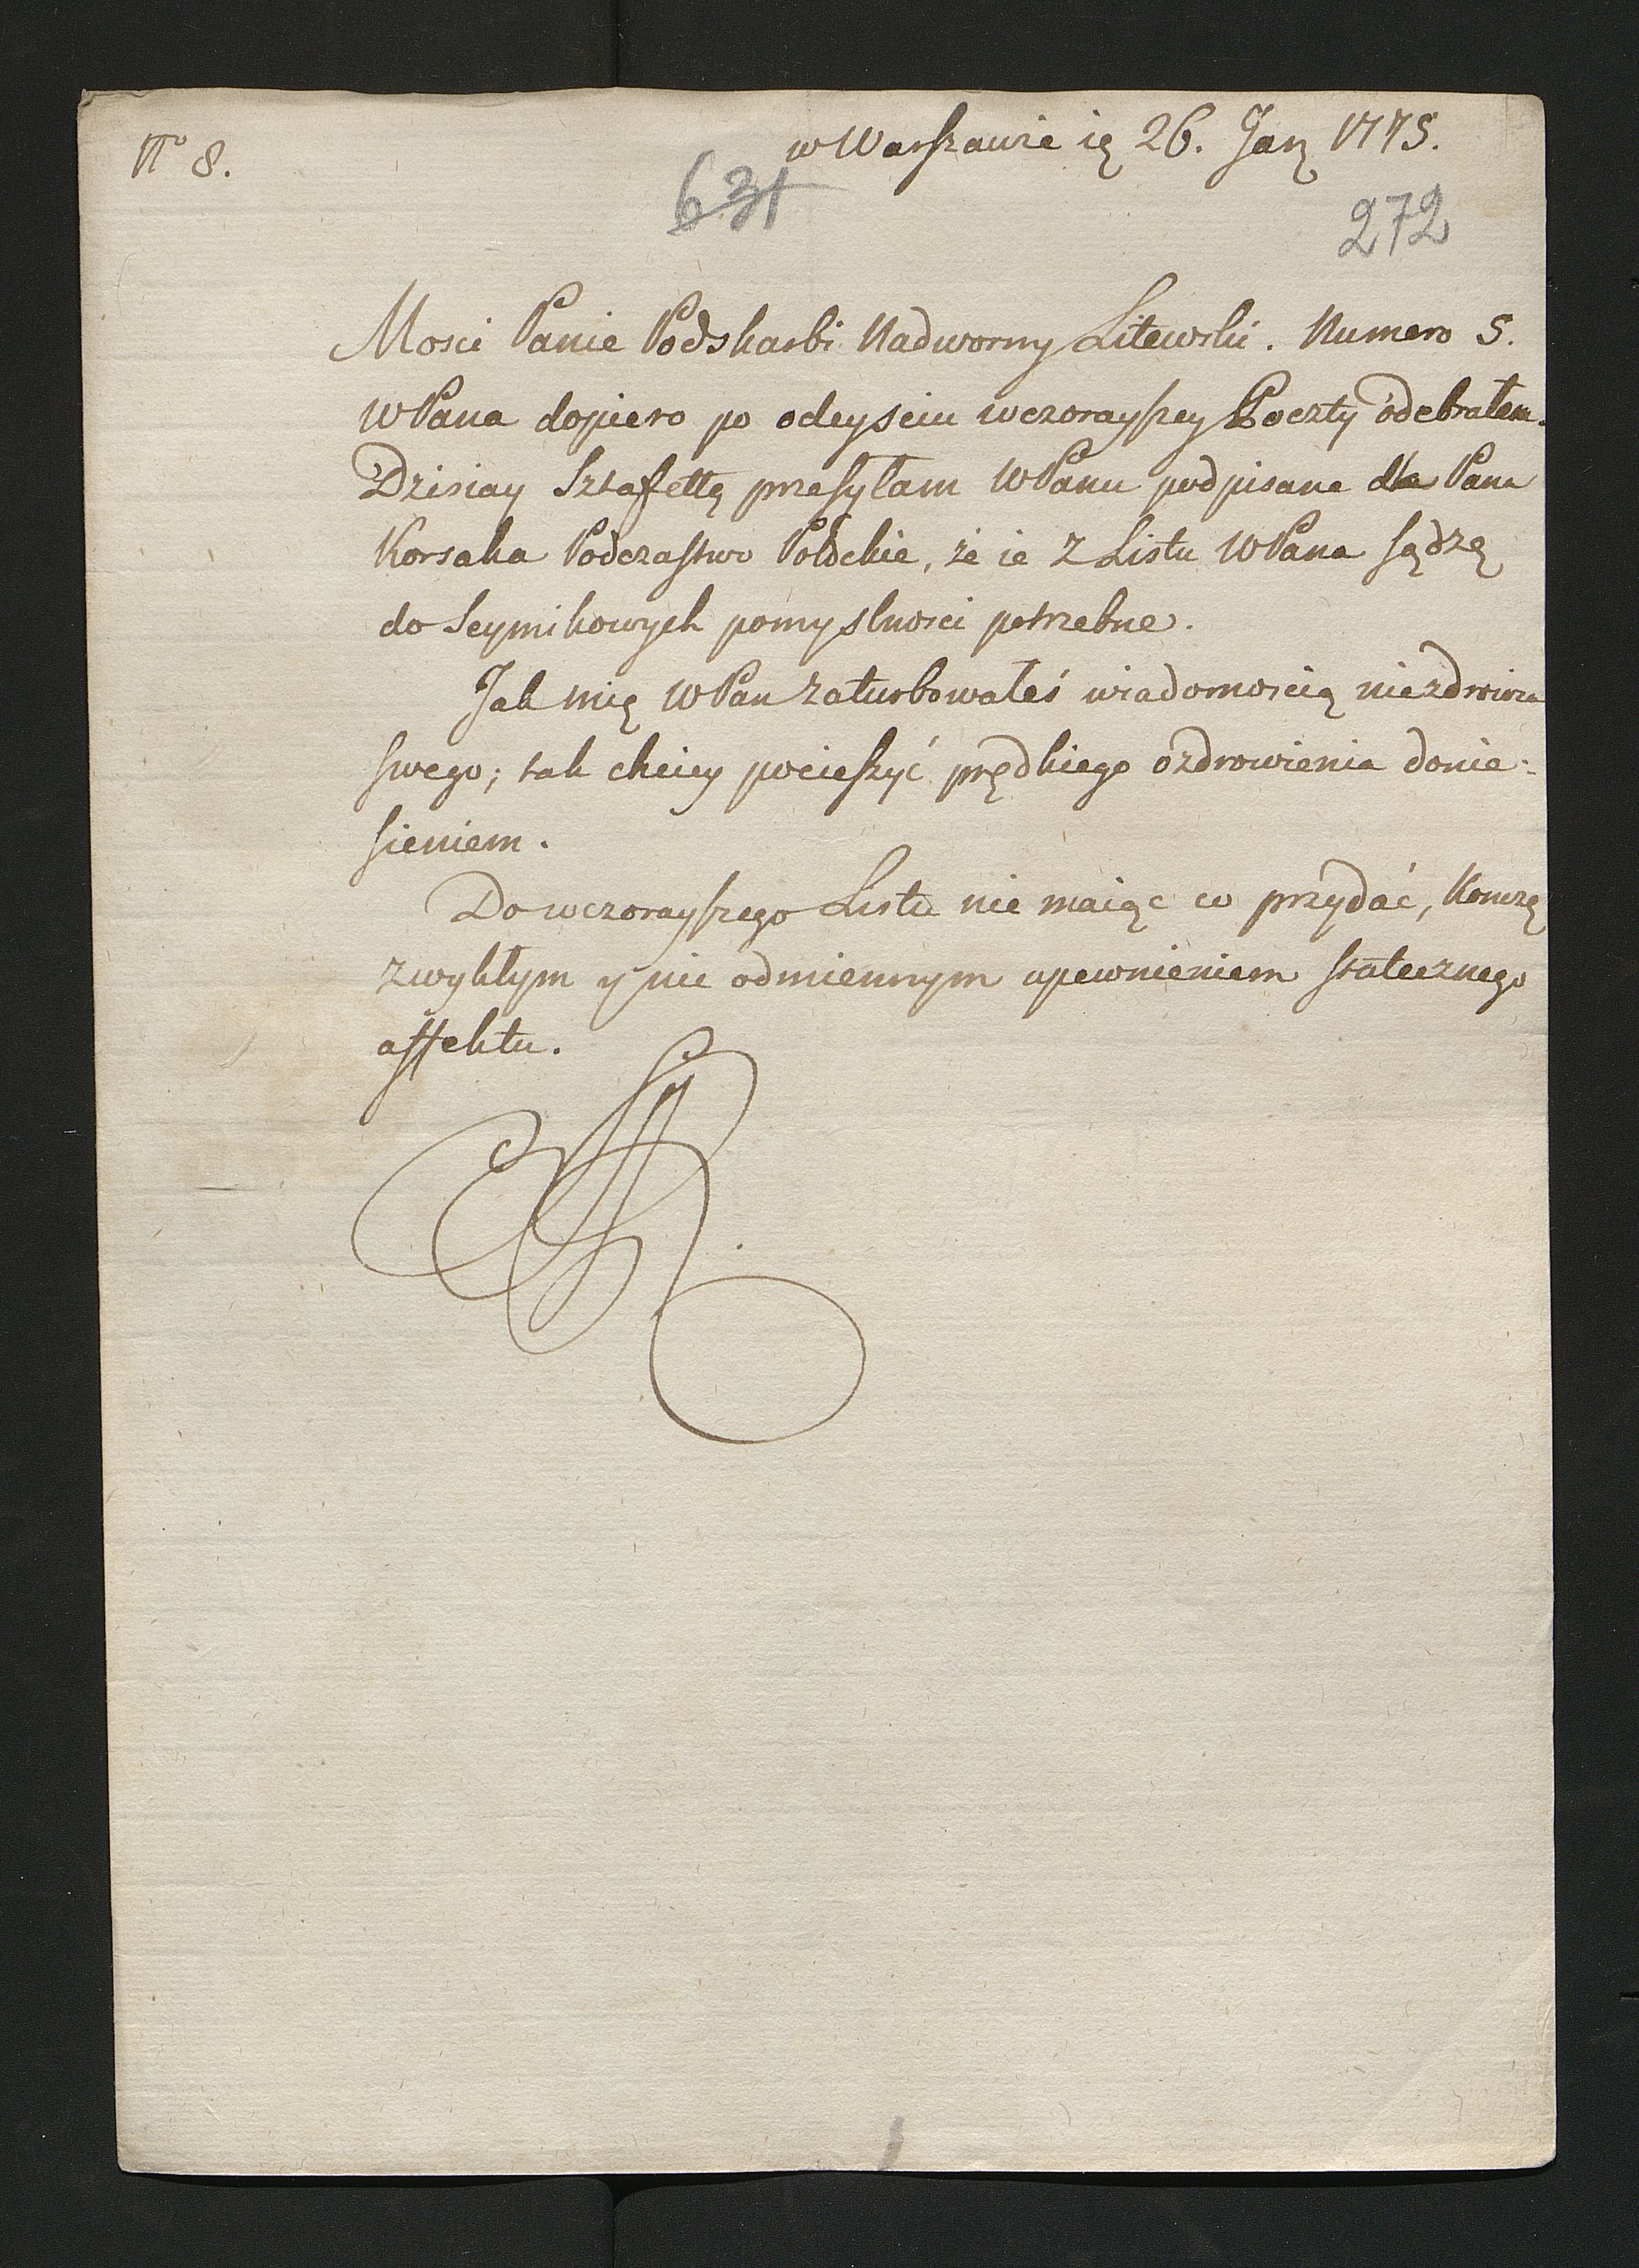 No 8.
w Warszawie ię 26. Jan 1775.
631
272
Mosci Panie Podskarbi Nadworny Litewski. Numero 5.
WPana dopiero po odeysciu wczorayszey Poczty odebrałem.
Dzisiay Sztafettę przesyłam WPanu podpisane dla Pana
Korsaka Podczastwo Połockie, że ie z Listu WPana sądzę
do Seymikowych pomyslnosci potrzebne.
Jak mię WPan zaturbowałeś wiadomoscią niezdrowia
swego; tak chciey pocieszyć prędkiego ozdrowienia donie-
sieniem.
Do wczorayszego Listu nie maiąc co przydać, Konczę
zwykłym y nie odmiennym upewnieniem statecznego
affektu.